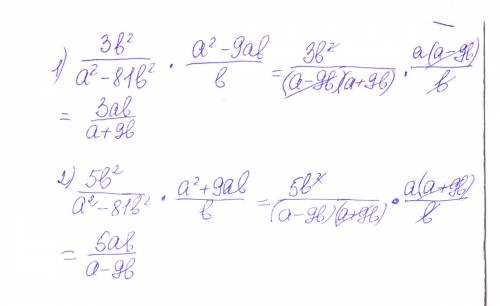 1) 3b²/(a²-81b²) · (a²-9ab)/b = 3b²/((a-9b)(a+9b)) · a(a-9b)/b
= 3ab/(a+9b)
2) 5b²/(a²-81b²) · (a²+9ab)/b = 5b²/((a-9b)(a+9b)) · a(a+9b)/b
= 5ab/(a-9b)